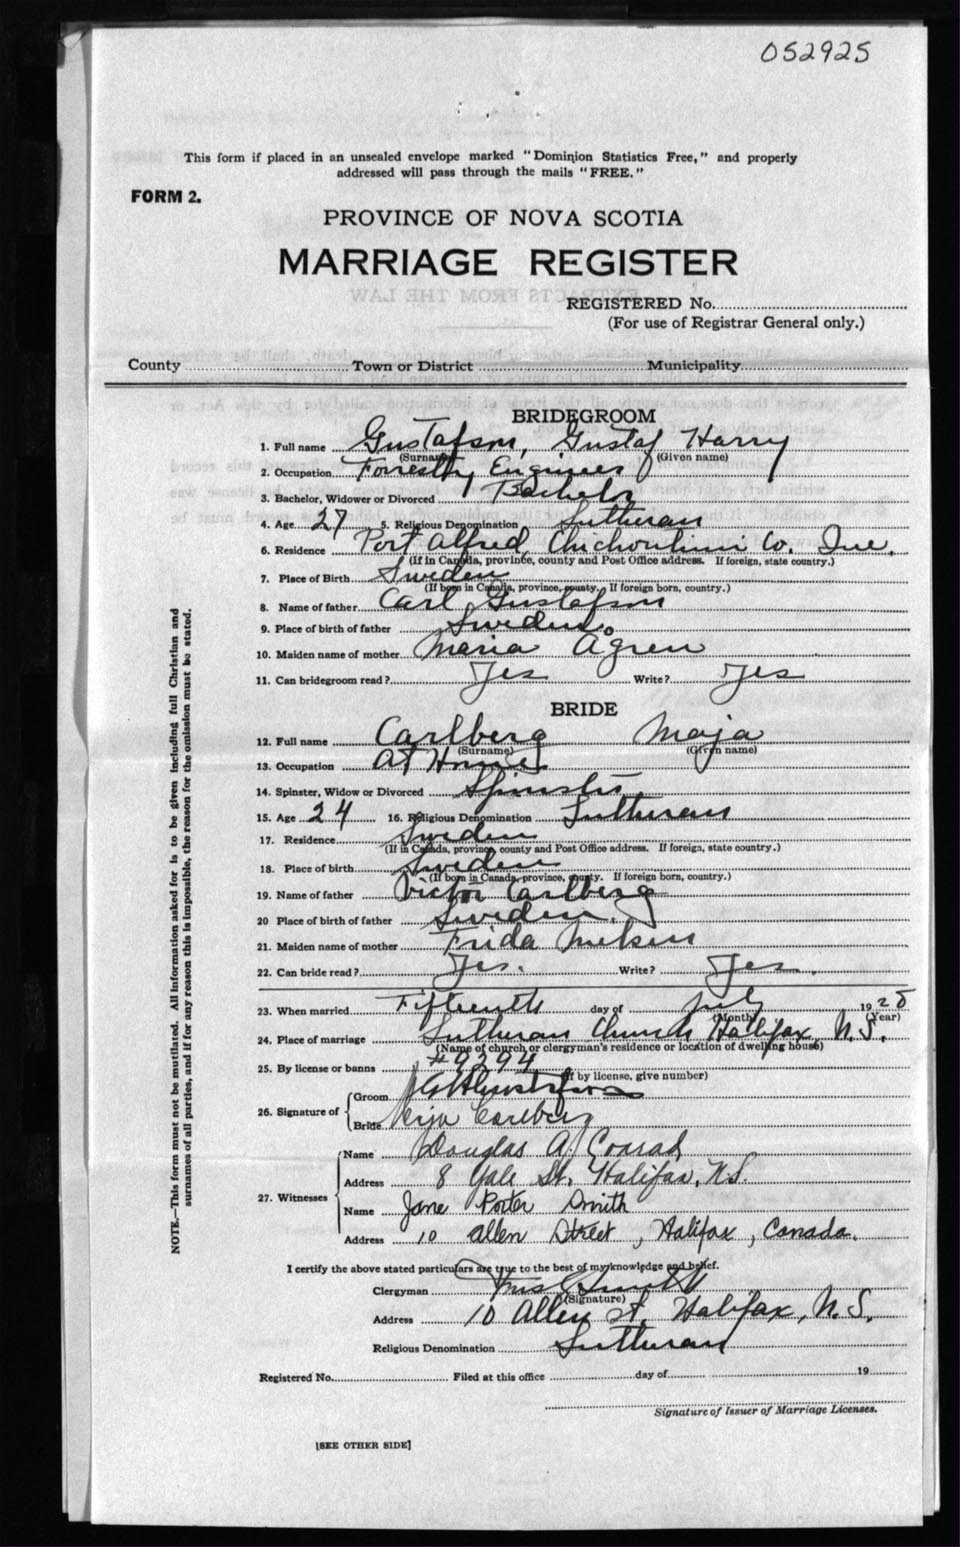 052925
This form if placed in an unsealed envelope marked "Dominion Statistics Free," and properly
addressed will pass through the mails "FREE."
FORM 2.
PROVINCE OF NOVA SCOTIA
MARRIAGE REGISTER
EXTRACTS FROM THE LAW
REGISTERED No.
(For use of Registrar General only.)
County Town or District Municipality
BRIDEGROOM
1. Full name Gustafson, Gustaf Harry
(Surname) (Given name)
2. Occupation Forrestry Engineer
3. Bachelor, Widower or Divorced Bachelor
4. Age 27 5. Religious Denomination Lutheran
6. Residence Port Alfred, Co. Que.
(If in Canada, province, county and Post Office address. If foreign, state country.)
7. Place of Birth Sweden
(If born in Canada, province, county. If foreign born, country.)
8. Name of father Carl Gustafson
9. Place of birth of father Sweden
10. Maiden name of mother Maria Ågren
11. Can bridegroom read? Yes Write? Yes
BRIDE
12. Full name Carlberg Maja
(Surname) (Given name)
13. Occupation At Home
14. Spinster, Widow or Divorced Spinster
15. Age 24 16. Religious Denomination Lutheran
17. Residence Sweden
(If in Canada, province, county and Post Office address. If foreign, state country.)
18. Place of birth Sweden
(If born in Canada, province, county. If foreign born, country.)
19. Name of father Victor Carlberg
20 Place of birth of father Sweden
21. Maiden name of mother Frida
22. Can bride read? Yes. Write? Yes
23. When married Fifteenth day of July 1928
(Month) (Year)
24. Place of marriage Lutheran Church Halifax, N.S.
(Name of church or clergyman's residence or location of dwelling house)
25. By license or banns #9294
(If by license, give number)
26. Signature of Groom Gustafson
Bride Maja Carlberg
27. Witnesses Name Douglas A. Conrad
Address 8 Yale St. Halifax, N.S.
Name Jane Porter Smith
Address 10 Allen Street, Halifax, Canada.
I certify the above stated particulars are true to the best of my knowledge and belief.
Clergyman
(Signature)
Address 10 Allen St. Halifax, N.S.
Religious Denomination Lutheran
Registered No. Filed at this office day of 19
Signature of Issuer of Marriage Licenses.
[SEE OTHER SIDE]
NOTE.—This form must not be mutilated. All information asked for is to be given including full Christian and
surnames of all parties, and if for any reason this is impossible, the reason for the omission must be stated.